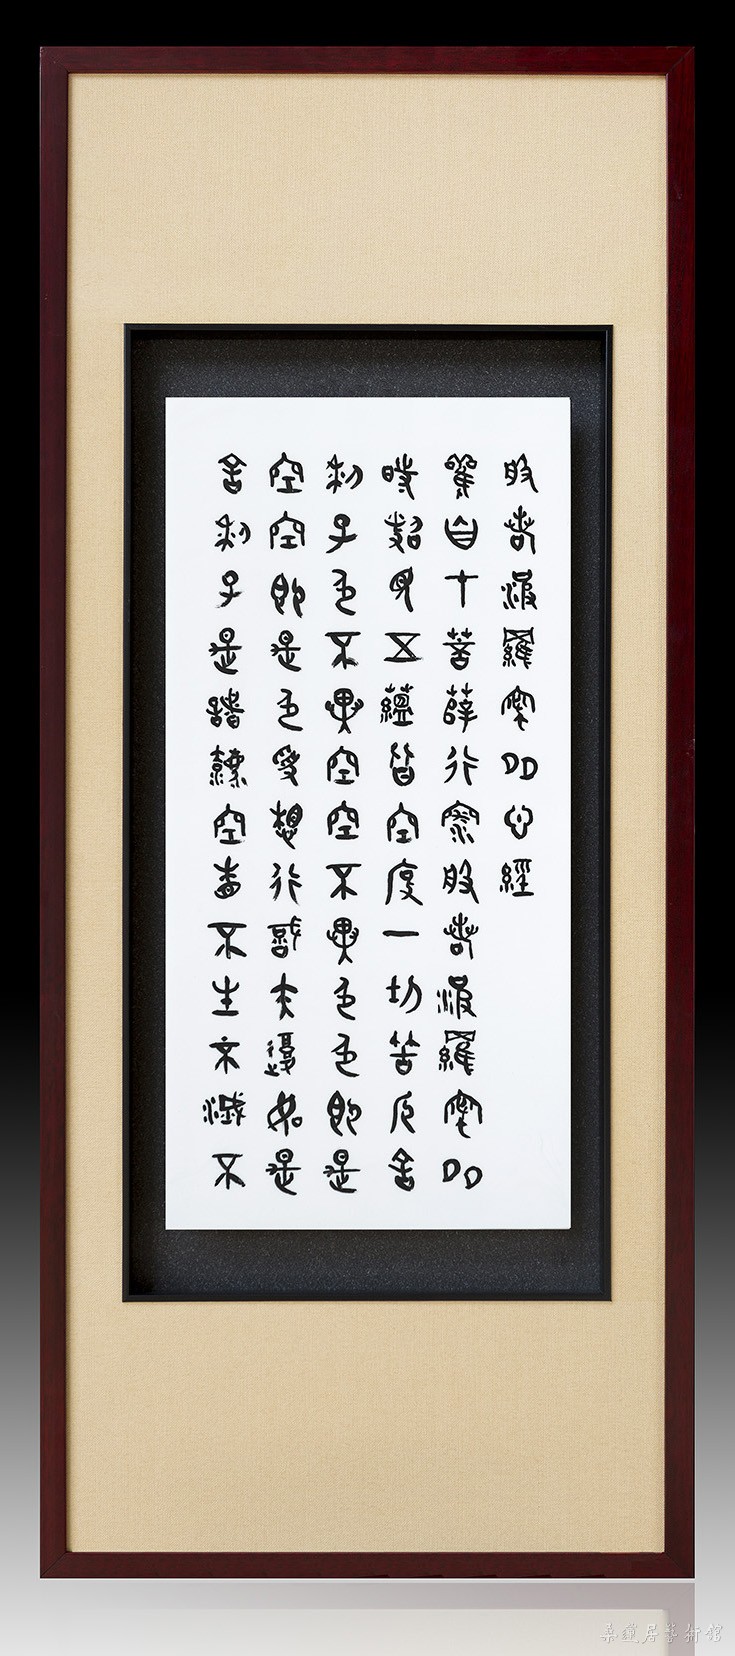 般若波羅蜜多心經
觀自在菩薩行深般若波羅蜜多
時照見五蘊皆空度一切苦厄舍
利子色不異空空不異色色即是
空空即是色受想行識亦復如是
舍利子是諸法空相不生不滅不
桑蓮居藝術館